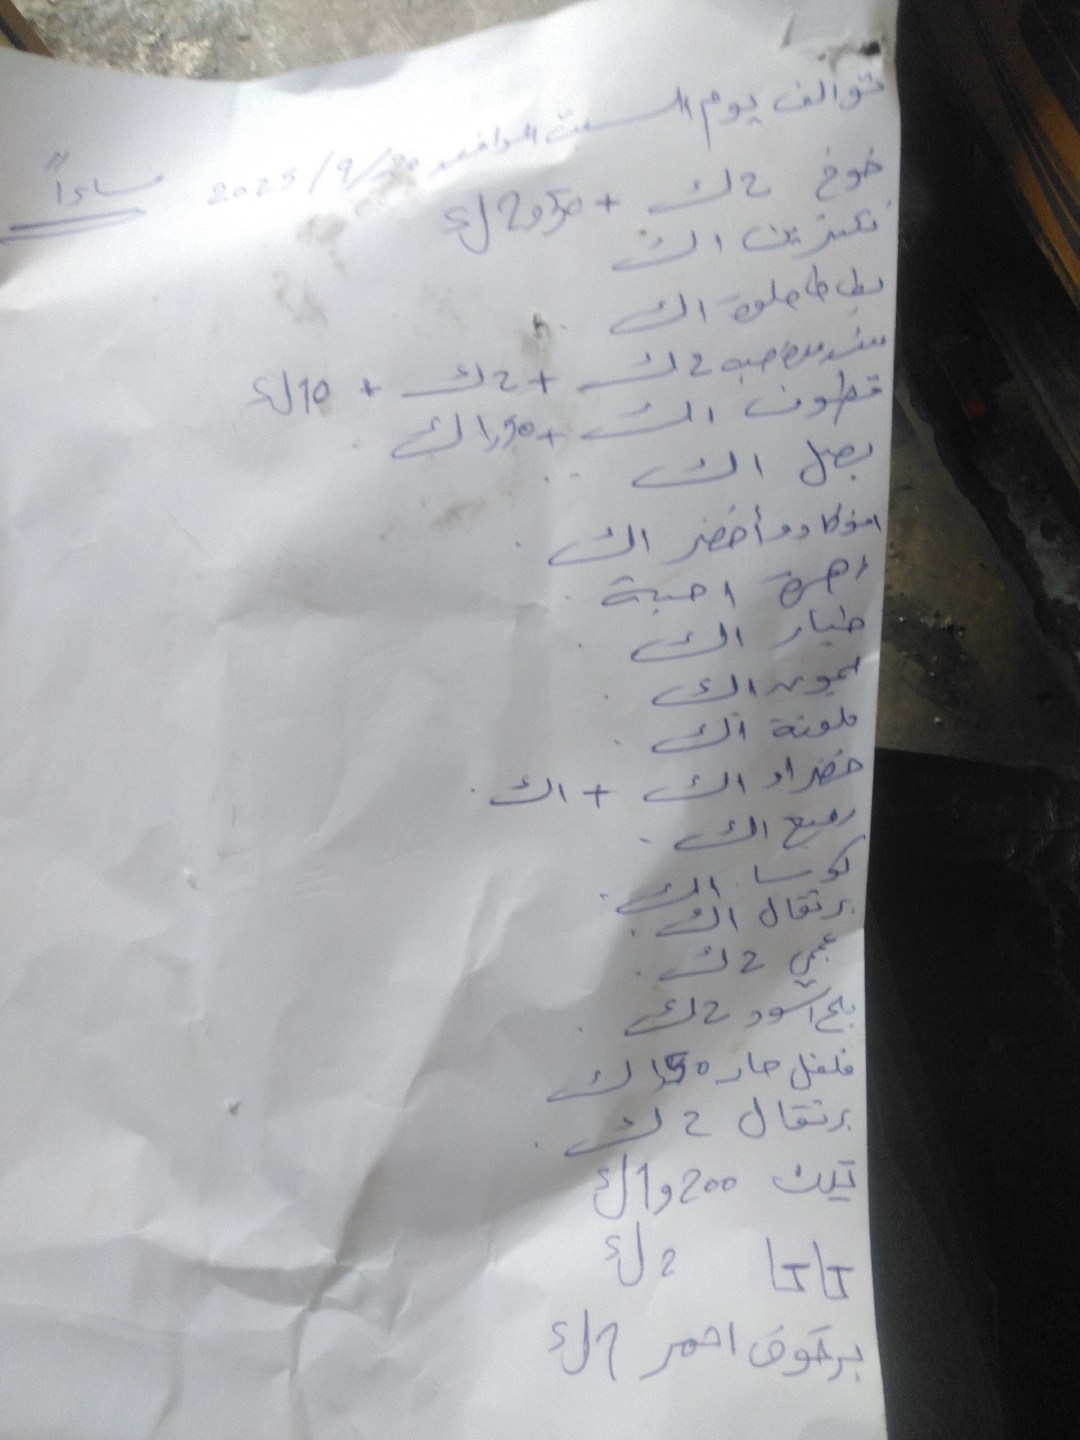 توالف يوم السبت الموافق 2025/9/20 مساءاً
خوخ 2ك + 2,50ك
نكترين 1ك
بطاطا حلوة 1ك
بندورة حبة 2ك + 2ك + 10ك
قطوف 1ك + 1,50ك
بصل 1ك
افوكادو أخضر 1ك
1 حبة
خيار 1ك
ليمون 1ك
ملونة 1ك
خضراء 1ك + 1ك
رفيع 1ك
كوسا 1ك
برتقال 1ك
2ك
بلح أسود 2ك
فلفل حار 1,50ك
برتقال 2ك
تين 200و1ك
2ك
برقوق احمر ك